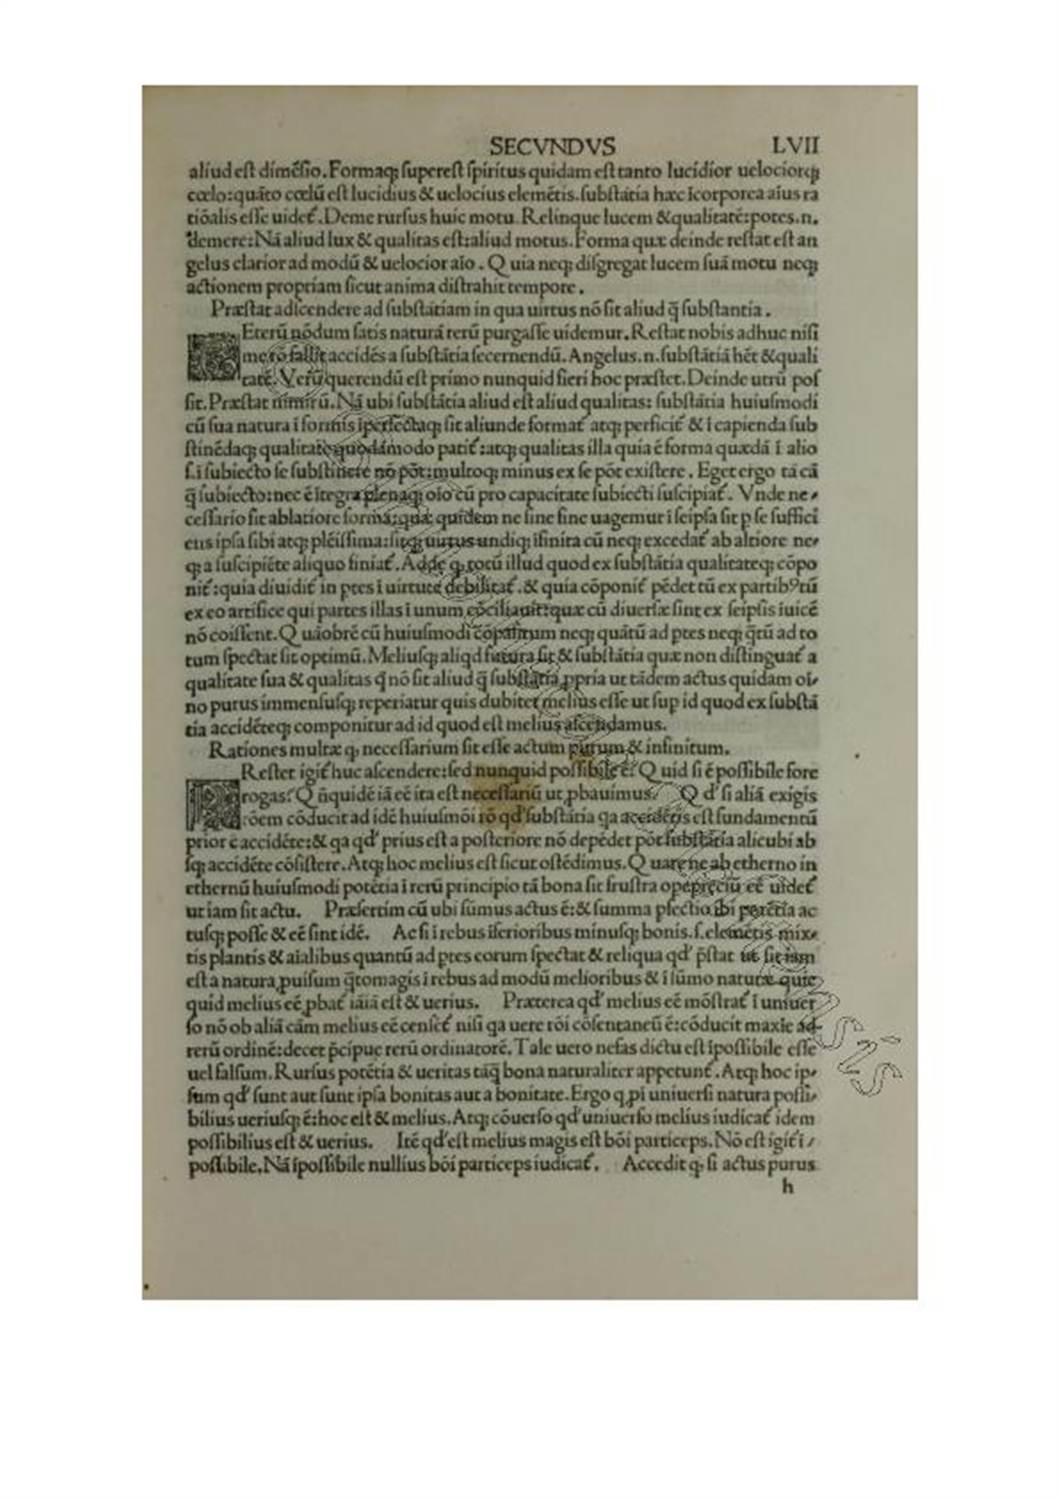 SECVNDVS LVII
aliud est dimẽsio. Formaqꝫ superest spiritus quidam est tanto lucidior uelociorqꝫ
cœlo: quãto cœlũ est lucidius & uelocius elemẽtis. substãtia hæc ĩcorporea aĩus ra
tiõalis esse uidet᷑. Deme rursus huic motũ. Relinque lucem & qualitatẽ: potes .n.
demere: Nã aliud lux & qualitas est: aliud motus. Forma quæ deinde restat est an
gelus clarior ad modũ & uelocior aĩo. Quia neqꝫ disgregat lucem suã motu neqꝫ
actionem propriam sicut anima distrahit tempore.
Præstat adscendere ad substãtiam in qua uirtus nõ sit aliud q̃ substantia.
Eterũ nõdum satis naturã rerũ purgasse uidemur. Restat nobis adhuc nisi
me rõ fallit accidẽs a substãtia secernendũ. Angelus .n. substãtiã hẽt & quali
tatẽ. Verũ querendũ est primo nunquid fieri hoc præstet. Deinde utrũ pos
sit. Præstat nimirũ. Nã ubi substãtia aliud est aliud qualitas: substãtia huiusmodi
cũ sua natura ĩformis ĩperfectaqꝫ sit aliunde format᷑ atqꝫ perficit᷑ & ĩ capienda sub
stinẽdaqꝫ qualitate quodãmodo patit᷑: atqꝫ qualitas illa quia ẽ forma quædã ĩ alio
s. ĩ subiecto se substinere nõ põt: multoqꝫ minus ex se põt existere. Eget ergo tã cã
q̃ subiecto: nec ẽ ĩtegra plenaqꝫ oĩo cũ pro capacitate subiecti suscipiat᷑. Vnde ne-
cessario fit ablatiore forma: quæ quidem ne sine fine uagemur ĩ seipsa sit p se suffici
ens ipsa sibi atqꝫ plẽissima: sitqꝫ uirtus undiqꝫ ĩfinita cũ neqꝫ excedat᷑ ab altiore ne-
qꝫ a suscipiẽte aliquo finiat᷑. Adde ꝙ totũ illud quod ex substãtia qualitateqꝫ cõpo
nit᷑: quia diuidit᷑ in ptes ĩ uirtute debilitat᷑. & quia cõponit᷑ pẽdet tũ ex partibꝰ tũ
ex eo artifice qui partes illas ĩ unum cõciliauit: quæ cũ diuersæ sint ex seipsis ĩuicẽ
nõ coissent. Quãobrẽ cũ huiusmodi cõpositum neqꝫ quãtũ ad ptes neqꝫ q̃tũ ad to
tum spectat sit optimũ. Meliusqꝫ aliqd futura sit & substãtia quæ non distinguat᷑ a
qualitate sua & qualitas q̃ nõ sit aliud q̃ substãtia ꝓpria ut tãdem actus quidam oĩ-
no purus immensusqꝫ reperiatur quis dubitet melius esse ut sup id quod ex substã
tia accidẽteqꝫ componitur ad id quod est melius ascendamus.
Rationes multæ ꝙ necessarium sit esse actum purum & infinitum.
Restet igit᷑ huc ascendere: sed nunquid possibile ẽ? Quid si ẽ possibile fore
rogas? Qñquidẽ iã eẽ ita est necessariũ ut ꝓbauimus. Qd᷑ si aliã exigis
rõem cõducit ad idẽ huiusmõi rõ qd᷑ substãtia qa accidẽtis est fundamentũ
prior ẽ accidẽte: & qa qd᷑ prius est a posteriore nõ depẽdet põt substãtia alicubi ab
sqꝫ accidẽte cõsistere. Atqꝫ hoc melius est sicut ostẽdimus. Quare ne ab etherno in
ethernũ huiusmodi potẽtia ĩ rerũ principio tã bona sit frustra opepreciũ eẽ uidet᷑
ut iam sit actu. Præsertim cũ ubi sũmus actus ẽ: & summa pfectio ibi potẽtia ac
tusqꝫ posse & eẽ sint idẽ. Ac si ĩ rebus ĩferioribus minusqꝫ bonis .s. elemẽtis mix-
tis plantis & aĩalibus quantũ ad ptes eorum spectat & reliqua qd᷑ p̃stat ut sit iam
est a natura ꝓuisum q̃tomagis ĩ rebus ad modũ melioribus & ĩ sũmo naturæ quic
quid melius eẽ ꝓbat᷑ iãiã est & uerius. Præterea qd᷑ melius eẽ mõstrat᷑ ĩ uniuer
so nõ ob aliã cãm melius eẽ censẽt᷑ nisi qa uere rõi cõsentaneũ ẽ: cõducit maxĩe ad
rerũ ordinẽ: decet p̃cipue rerũ ordinatorẽ. Tale uero nefas dictu est ĩpossibile esse
uel falsum. Rursus potẽtia & ueritas tãq̃ bona naturaliter appetunt᷑. Atqꝫ hoc ip-
sum qd᷑ sunt aut sunt ipsa bonitas aut a bonitate. Ergo ꝙ pi uniuersi natura possi-
bilius ueriusqꝫ ẽ: hoc est & melius. Atqꝫ cõuerso qd᷑ uniuerso melius iudicat᷑ idem
possibilius est & uerius. Itẽ qd᷑ est melius magis est bõi particeps. Nõ est igit᷑ ĩ-
possibile. Nã ĩpossibile nullius bõi particeps iudicat᷑. Accedit ꝙ si actus purus
h